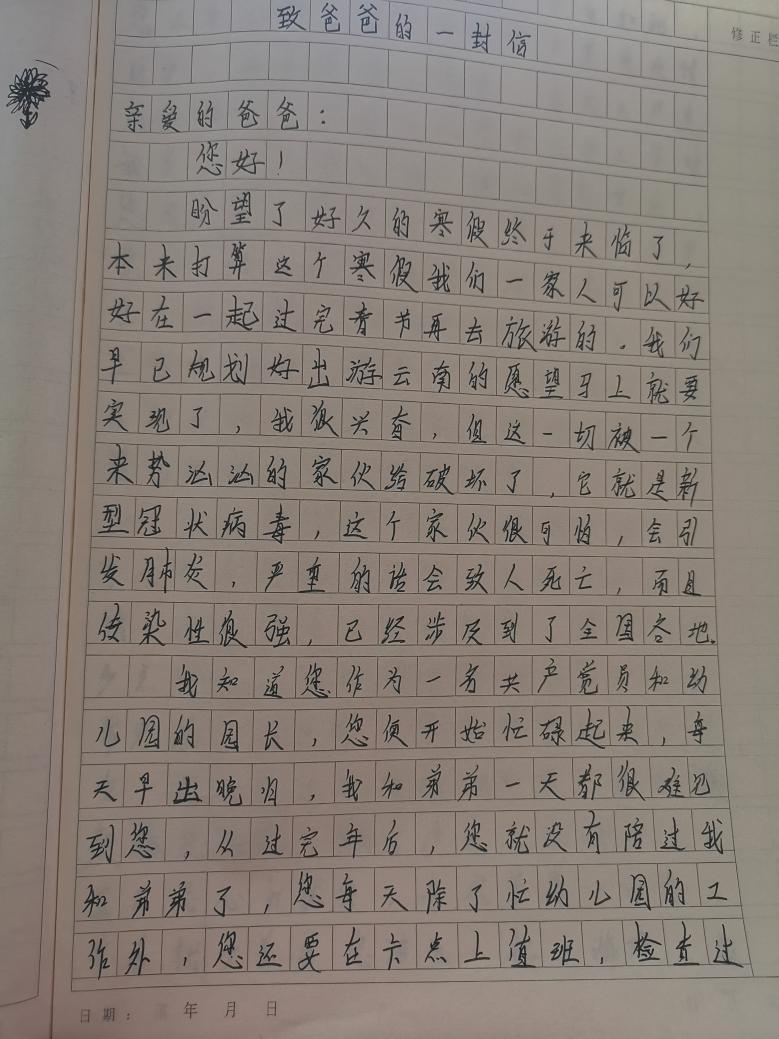 致爸爸的一封信
修正栏
亲爱的爸爸：
您好！
盼望了好久的寒假终于来临了，
本来打算这个寒假我们一家人可以好
好在一起过完春节再去旅游的。我们
早已规划好出游云南的愿望马上就要
实现了，我很兴奋，但这一切被一个
来势汹汹的家伙给破坏了，它就是新
型冠状病毒，这个家伙很可怕，会引
发肺炎，严重的话会致人死亡，而且
传染性很强，已经涉及到了全国各地。
我知道您作为一名共产党员和幼
儿园的园长，您便开始忙碌起来，每
天早出晚归，我和弟弟一天都很难见
到您，从过完年后，您就没有陪过我
和弟弟了，您每天除了忙幼儿园的工
作外，您还要在卡点上值班，检查过
日期：　年　月　日